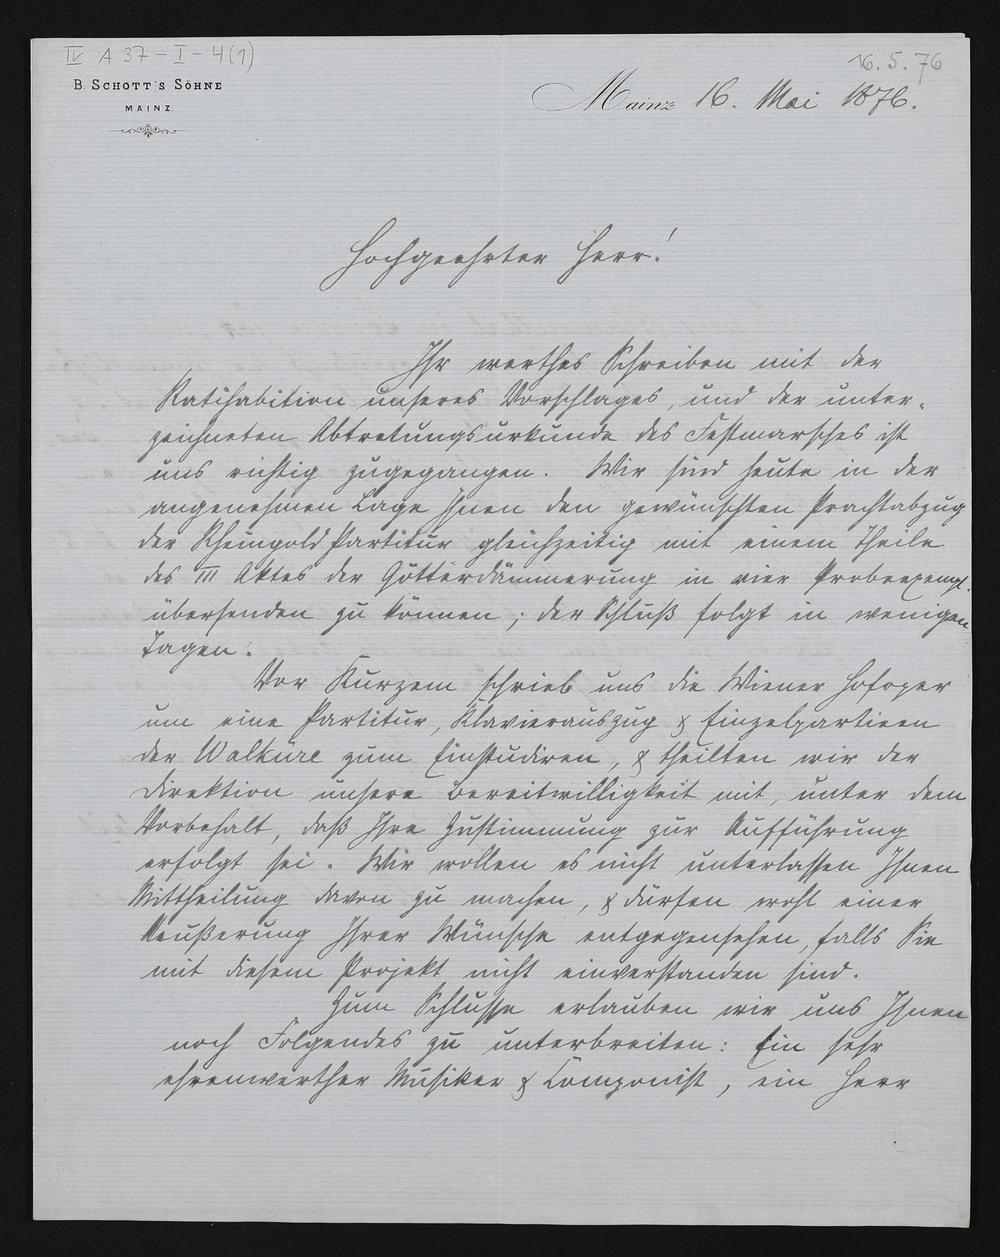 IV A 37 - I - 4(1)
16. 5. 76
B. SCHOTT'S SÖHNE
MAINZ.
Mainz 16. Mai 1876.
Hochgeehrter Herr!
Ihr werthes Schreiben mit der
Ratihabition unseres Vorschlages, und der unter-
zeichneten Abtretungsurkunde des Festmarsches ist
uns richtig zugegangen. Wir sind heute in der
angenehmen Lage Ihnen den gewünschten Prachtabzug
der Rheingold Partitur gleichzeitig mit einem Theile
des III Aktes der Götterdämmerung in vier Probeexempl.
übersenden zu können; der Schluß folgt in wenigen
Tagen.
Vor Kurzem schrieb uns die Wiener Hofoper
um eine Partitur, Klavierauszug & Einzelpartieen
der Walküre zum Einstudiren, & theilten wir der
Direktion unsere Bereitwilligkeit mit, unter dem
Vorbehalt, daß Ihre Zustimmung zur Aufführung
erfolgt sei. Wir wollen es nicht unterlassen Ihnen
Mittheilung davon zu machen, & dürfen wohl einer
Aeußerung Ihrer Wünsche entgegensehen, falls Sie
mit diesem Projekt nicht einverstanden sind.
Zum Schlusse erlauben wir uns Ihnen
noch Folgendes zu unterbreiten: Ein sehr
ehrenwerther Musiker & Componist, ein Herr